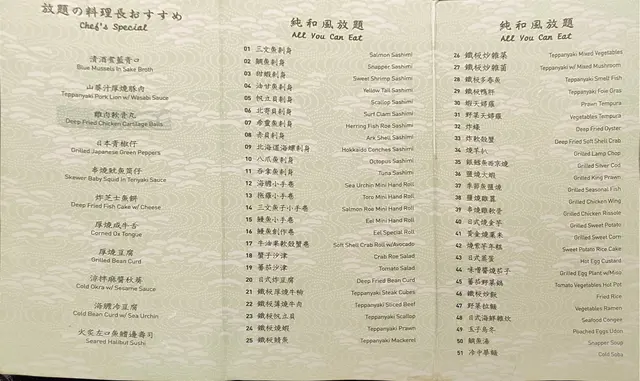 放題の料理長おすすめ
Chef's Special
清酒煮藍青口
Blue Mussels In Sake Broth
山葵汁厚燒豚肉
Teppanyaki Pork Lion w/ Wasabi Sauce
雞肉軟骨丸
Deep Fried Chicken Cartilage Balls
日本青椒仔
Grilled Japanese Green Peppers
串燒魷魚筒仔
Skewer Baby Squid in Teriyaki Sauce
炸芝士魚餅
Deep Fried Fish Cake w/ Cheese
厚燒咸牛舌
Corned Ox Tongue
厚燒豆腐
Grilled Bean Curd
涼拌麻醬秋葵
Cold Okra w/ Sesame Sauce
海膽冷豆腐
Cold Bean Curd w/ Sea Urchin
火炙左口魚鰭邊壽司
Seared Halibut Sushi
純和風放題
All You Can Eat
01 三文魚刺身 Salmon Sashimi
02 鯛魚刺身 Snapper Sashimi
03 甜蝦刺身 Sweet Shrimp Sashimi
04 油甘魚刺身 Yellow Tail Sashimi
05 帆立貝刺身 Scallop Sashimi
06 北寄貝刺身 Surf Clam Sashimi
07 希靈魚刺身 Herring Fish Roe Sashimi
08 赤貝刺身 Ark Shell Sashimi
09 北海道海螺刺身 Hokkaido Conches Sashimi
10 八爪魚刺身 Octopus Sashimi
11 吞拿魚刺身 Tuna Sashimi
12 海膽小手卷 Sea Urchin Mini Hand Roll
13 拖羅小手卷 Toro Mini Hand Roll
14 三文魚子小手卷 Salmon Roe Mini Hand Roll
15 鰻魚小手卷 Eel Mini Hand Roll
16 鰻魚創作卷 Eel Special Roll
17 牛油果軟殼蟹卷 Soft Shell Crab Roll w/Avocado
18 蟹子沙律 Crab Roe Salad
19 蕃茄沙律 Tomato Salad
20 日式炸豆腐 Deep Fried Bean Curd
21 鐵板厚燒牛柳 Teppanyaki Steak Cubes
22 鐵板薄燒牛肉 Teppanyaki Sliced Beef
23 鐵板帆立貝 Teppanyaki Scallop
24 鐵板燒蝦 Teppanyaki Prawn
25 鐵板鯖魚 Teppanyaki Mackerel
純和風放題
All You Can Eat
26 鐵板炒雜菜 Teppanyaki Mixed Vegetables
27 鐵板炒雜菌 Teppanyaki w/ Mixed Mushroom
28 鐵板多春魚 Teppanyaki Smelt Fish
29 鐵板鴨肝 Teppanyaki Foie Gras
30 蝦天婦羅 Prawn Tempura
31 野菜天婦羅 Vegetables Tempura
32 炸蠔 Deep Fried Oyster
33 炸軟殼蟹 Deep Fried Soft Shell Crab
34 燒羊扒 Grilled Lamb Chop
35 銀鱈魚西京燒 Grilled Silver Cod
36 鹽燒大蝦 Grilled King Prawn
37 季節魚鹽燒 Grilled Seasonal Fish
38 鹽燒雞翼 Grilled Chicken Wing
39 串燒雞軟骨 Grilled Chicken Rissole
40 日式燒金芋 Grilled Sweet Potato
41 黃金燒粟米 Grilled Sweet Corn
42 燒紫芋羊羔 Sweet Potato Rice Cake
43 日式蒸蛋 Hot Egg Custard
44 味噌醬燒茄子 Grilled Egg Plant w/Miso
45 蕃茄野菜鍋 Tomato Vegetables Hot Pot
46 鐵板炒飯 Fried Rice
47 野菜拉麵 Vegetables Ramen
48 日式海鮮雜炊 Seafood Congee
49 玉子烏冬 Poached Eggs Udon
50 鯛魚湯 Snapper Soup
51 冷中華麵 Cold Soba